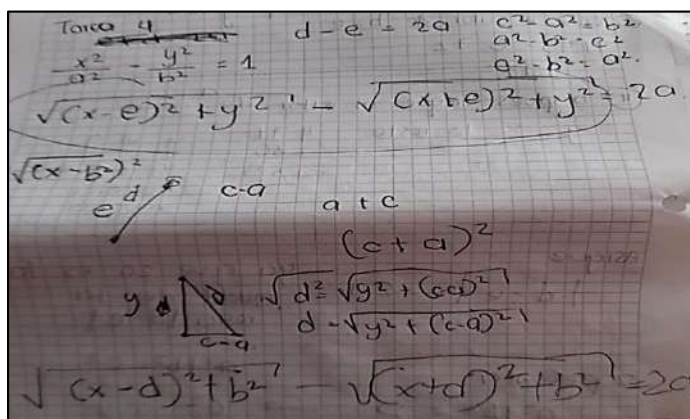 Tarea 4 d - e = 2a c² - a² = b²
x²/a² - y²/b² = 1 a² - b² - c²
a² - b² = a².
√(x-e)² + y² - √(x+e)² + y² = 2a
√(x-b²)²
e d c-a a + c
(c + a)²
y d c-a √d² = √y² + (ca)²
d - √y² + (c-a)²
√(x-d)² + b² - √(x+d)² + b² = 2a